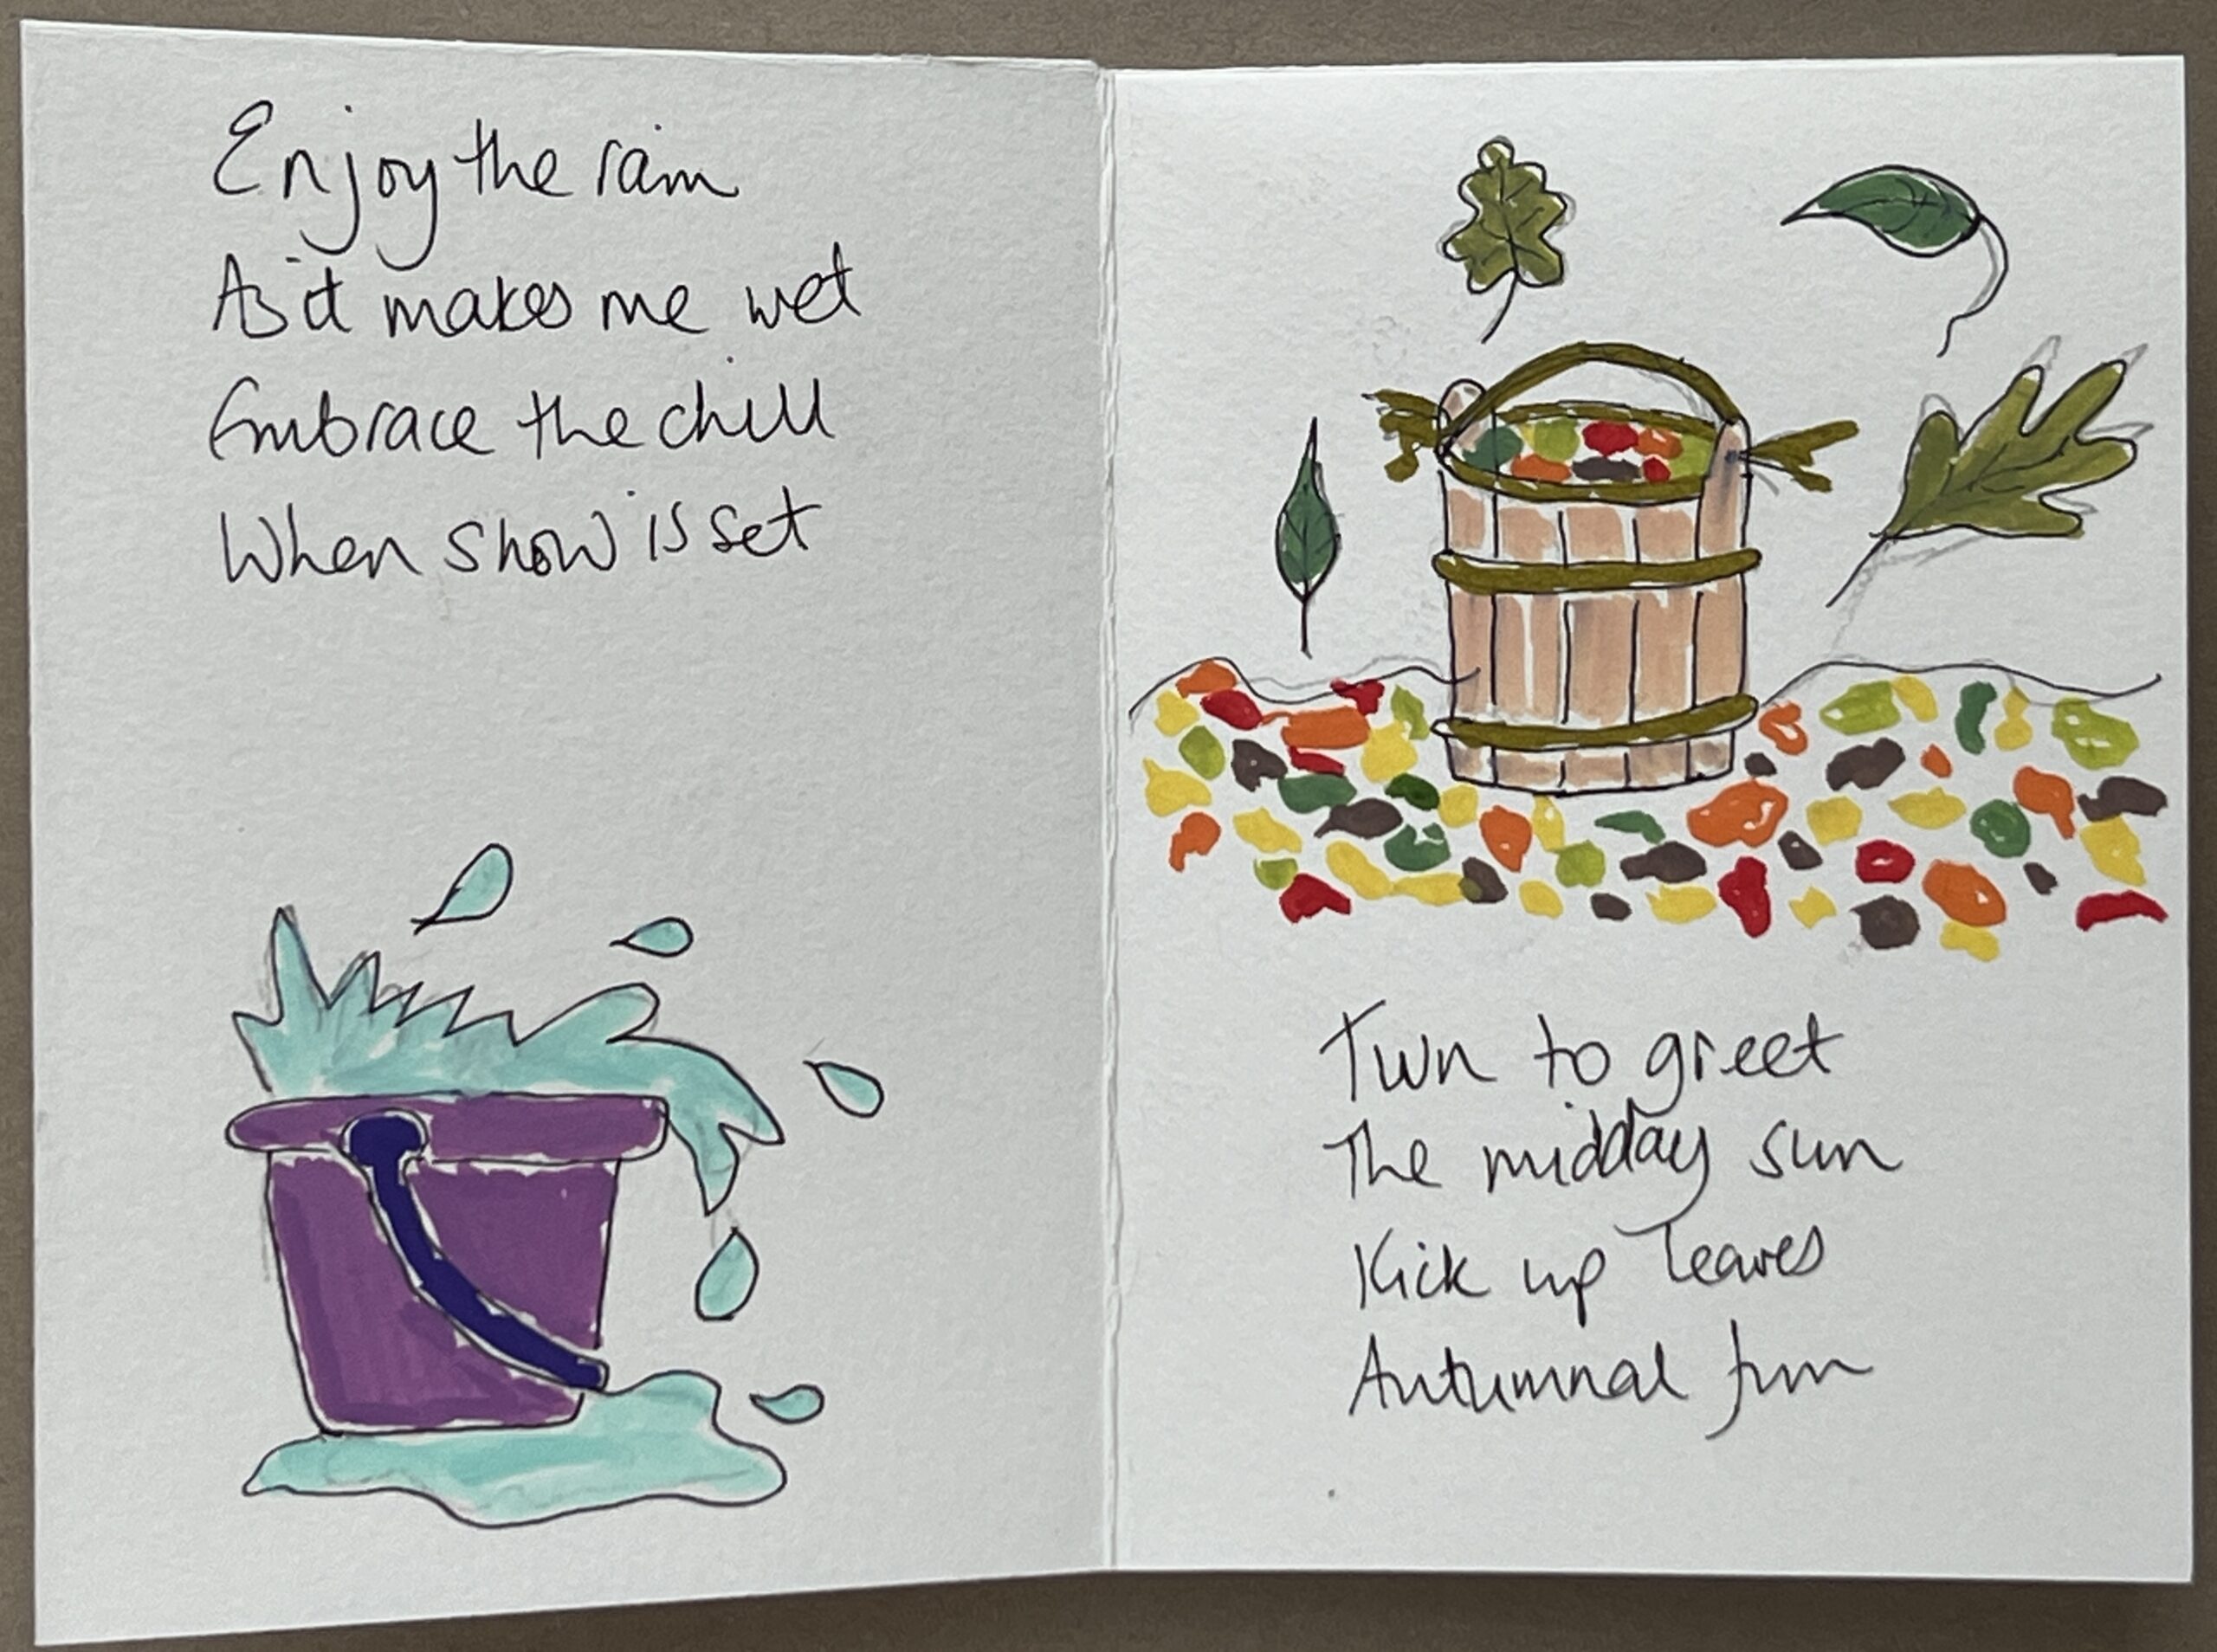 Enjoy the rain
As it makes me wet
Embrace the chill
When snow is set
Turn to greet
The midday sun
Kick up leaves
Autumnal fun